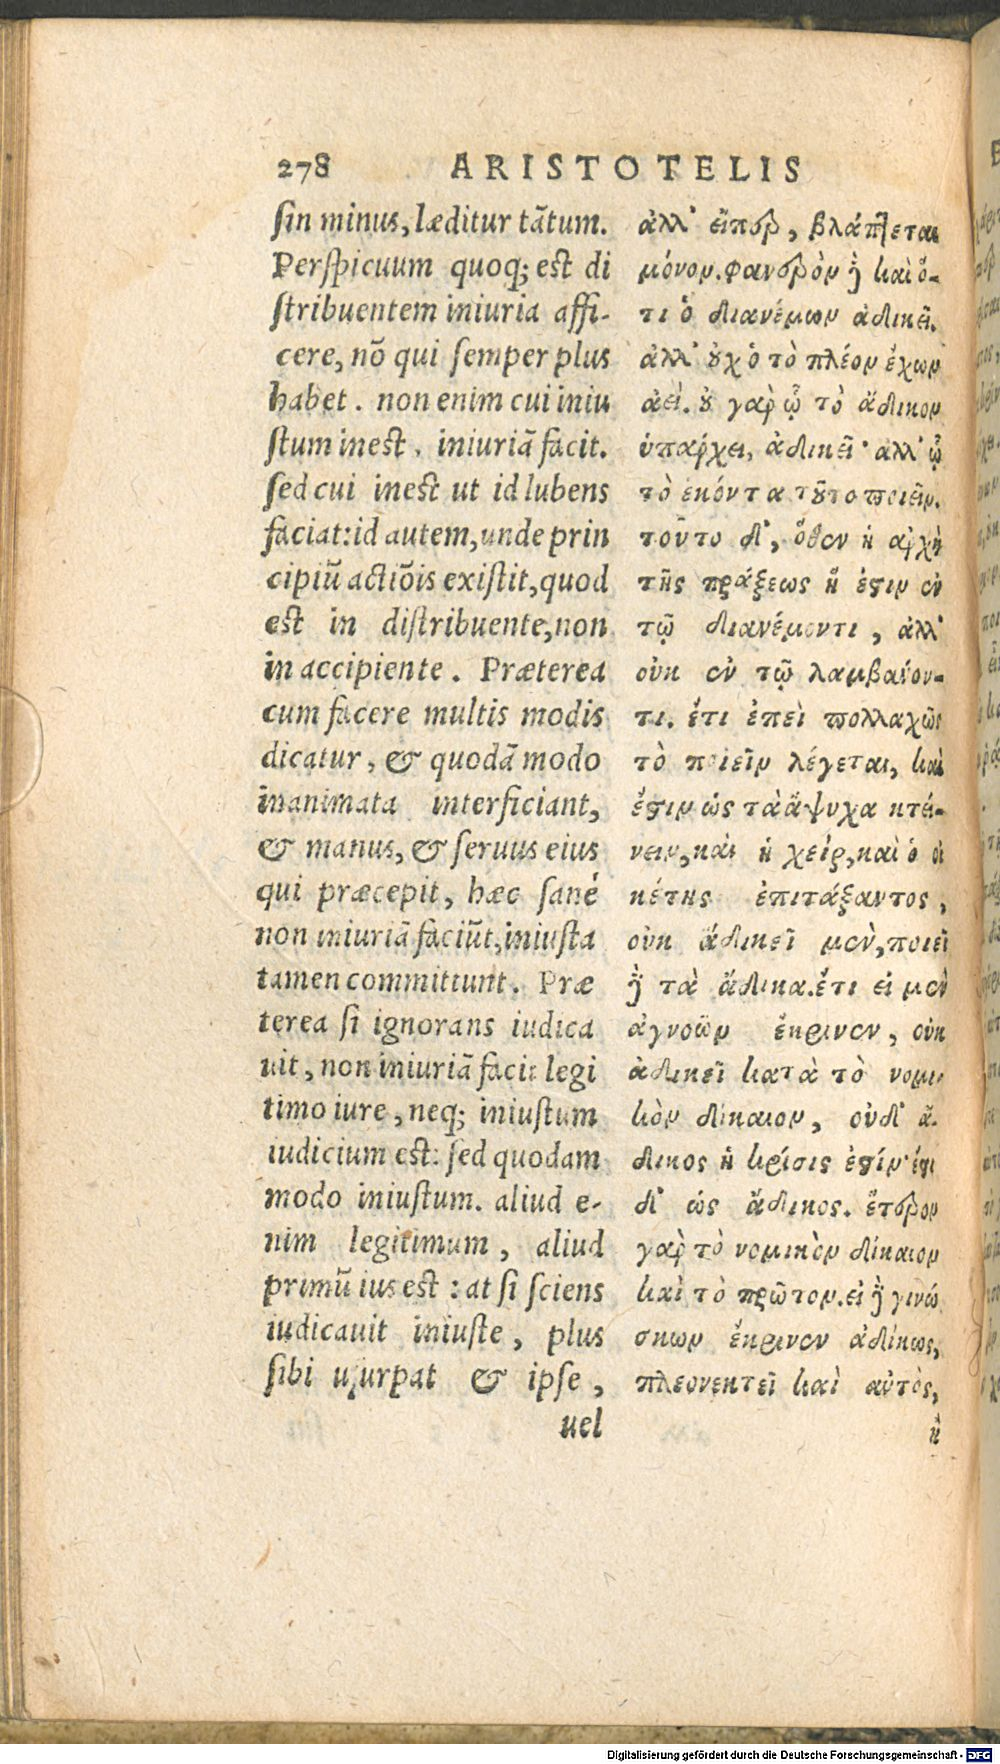 278 ARISTOTELIS
sin minus, læditur tãtum.
Perspicuum quoq; est di
stribuentem iniuria affi-
cere, nõ qui semper plus
habet. non enim cui iniu
stum inest, iniuriã facit.
sed cui inest ut id lubens
faciat: id autem, unde prin
cipiũ actiõis existit, quod
est in distribuente, non
in accipiente. Præterea
cum facere multis modis
dicatur, & quodã modo
inanimata interficiant,
& manus, & seruus eius
qui præcepit, hæc sané
non iniuriã faciũt, iniusta
tamen committunt. Præ
terea si ignorans iudica
uit, non iniuriã facit legi
timo iure, neq; iniustum
iudicium est: sed quodam
modo iniustum. aliud e-
nim legitimum, aliud
primũ ius est: at si sciens
iudicauit iniuste, plus
sibi usurpat & ipse,
uel
ἀλλ' εἴπερ, βλάπτεται
μόνον. φανερὸν δὲ καὶ ὅ-
τι ὁ διανέμων ἀδικεῖ.
ἀλλ' οὐχ ὁ τὸ πλέον ἔχων
ἀεί. οὐ γὰρ ᾧ τὸ ἄδικον
ὑπάρχει, ἀδικεῖ· ἀλλ' ᾧ
τὸ ἑκόντα τοῦτο ποιεῖν.
τοῦτο δ', ὅθεν ἡ ἀρχὴ
τῆς πράξεως ἥ ἐστιν ἐν
τῷ διανέμοντι, ἀλλ'
οὐκ ἐν τῷ λαμβάνον-
τι. ἔτι ἐπεὶ πολλαχῶς
τὸ ποιεῖν λέγεται, καὶ
ἔστιν ὡς τὰ ἄψυχα κτέι-
νειν, καὶ ἡ χείρ, καὶ ὁ οἰ
κέτης ἐπιτάξαντος,
οὐκ ἀδικεῖ μὲν, ποιεῖ
δὲ τὰ ἄδικα. ἔτι εἰ μὲν
ἀγνοῶν ἔκρινεν, οὐκ
ἀδικεῖ κατὰ τὸ νομι-
κὸν δίκαιον, οὐδ' ἄ-
δικος ἡ κρίσις ἐστίν· ἔστι
δ' ὡς ἄδικος. ἕτερον
γὰρ τὸ νομικὸν δίκαιον
καὶ τὸ πρῶτον. εἰ δὲ γινώ
σκων ἔκρινεν ἀδίκως,
πλεονεκτεῖ καὶ αὐτὸς,
ἢ
Digitalisierung gefördert durch die Deutsche Forschungsgemeinschaft - DFG